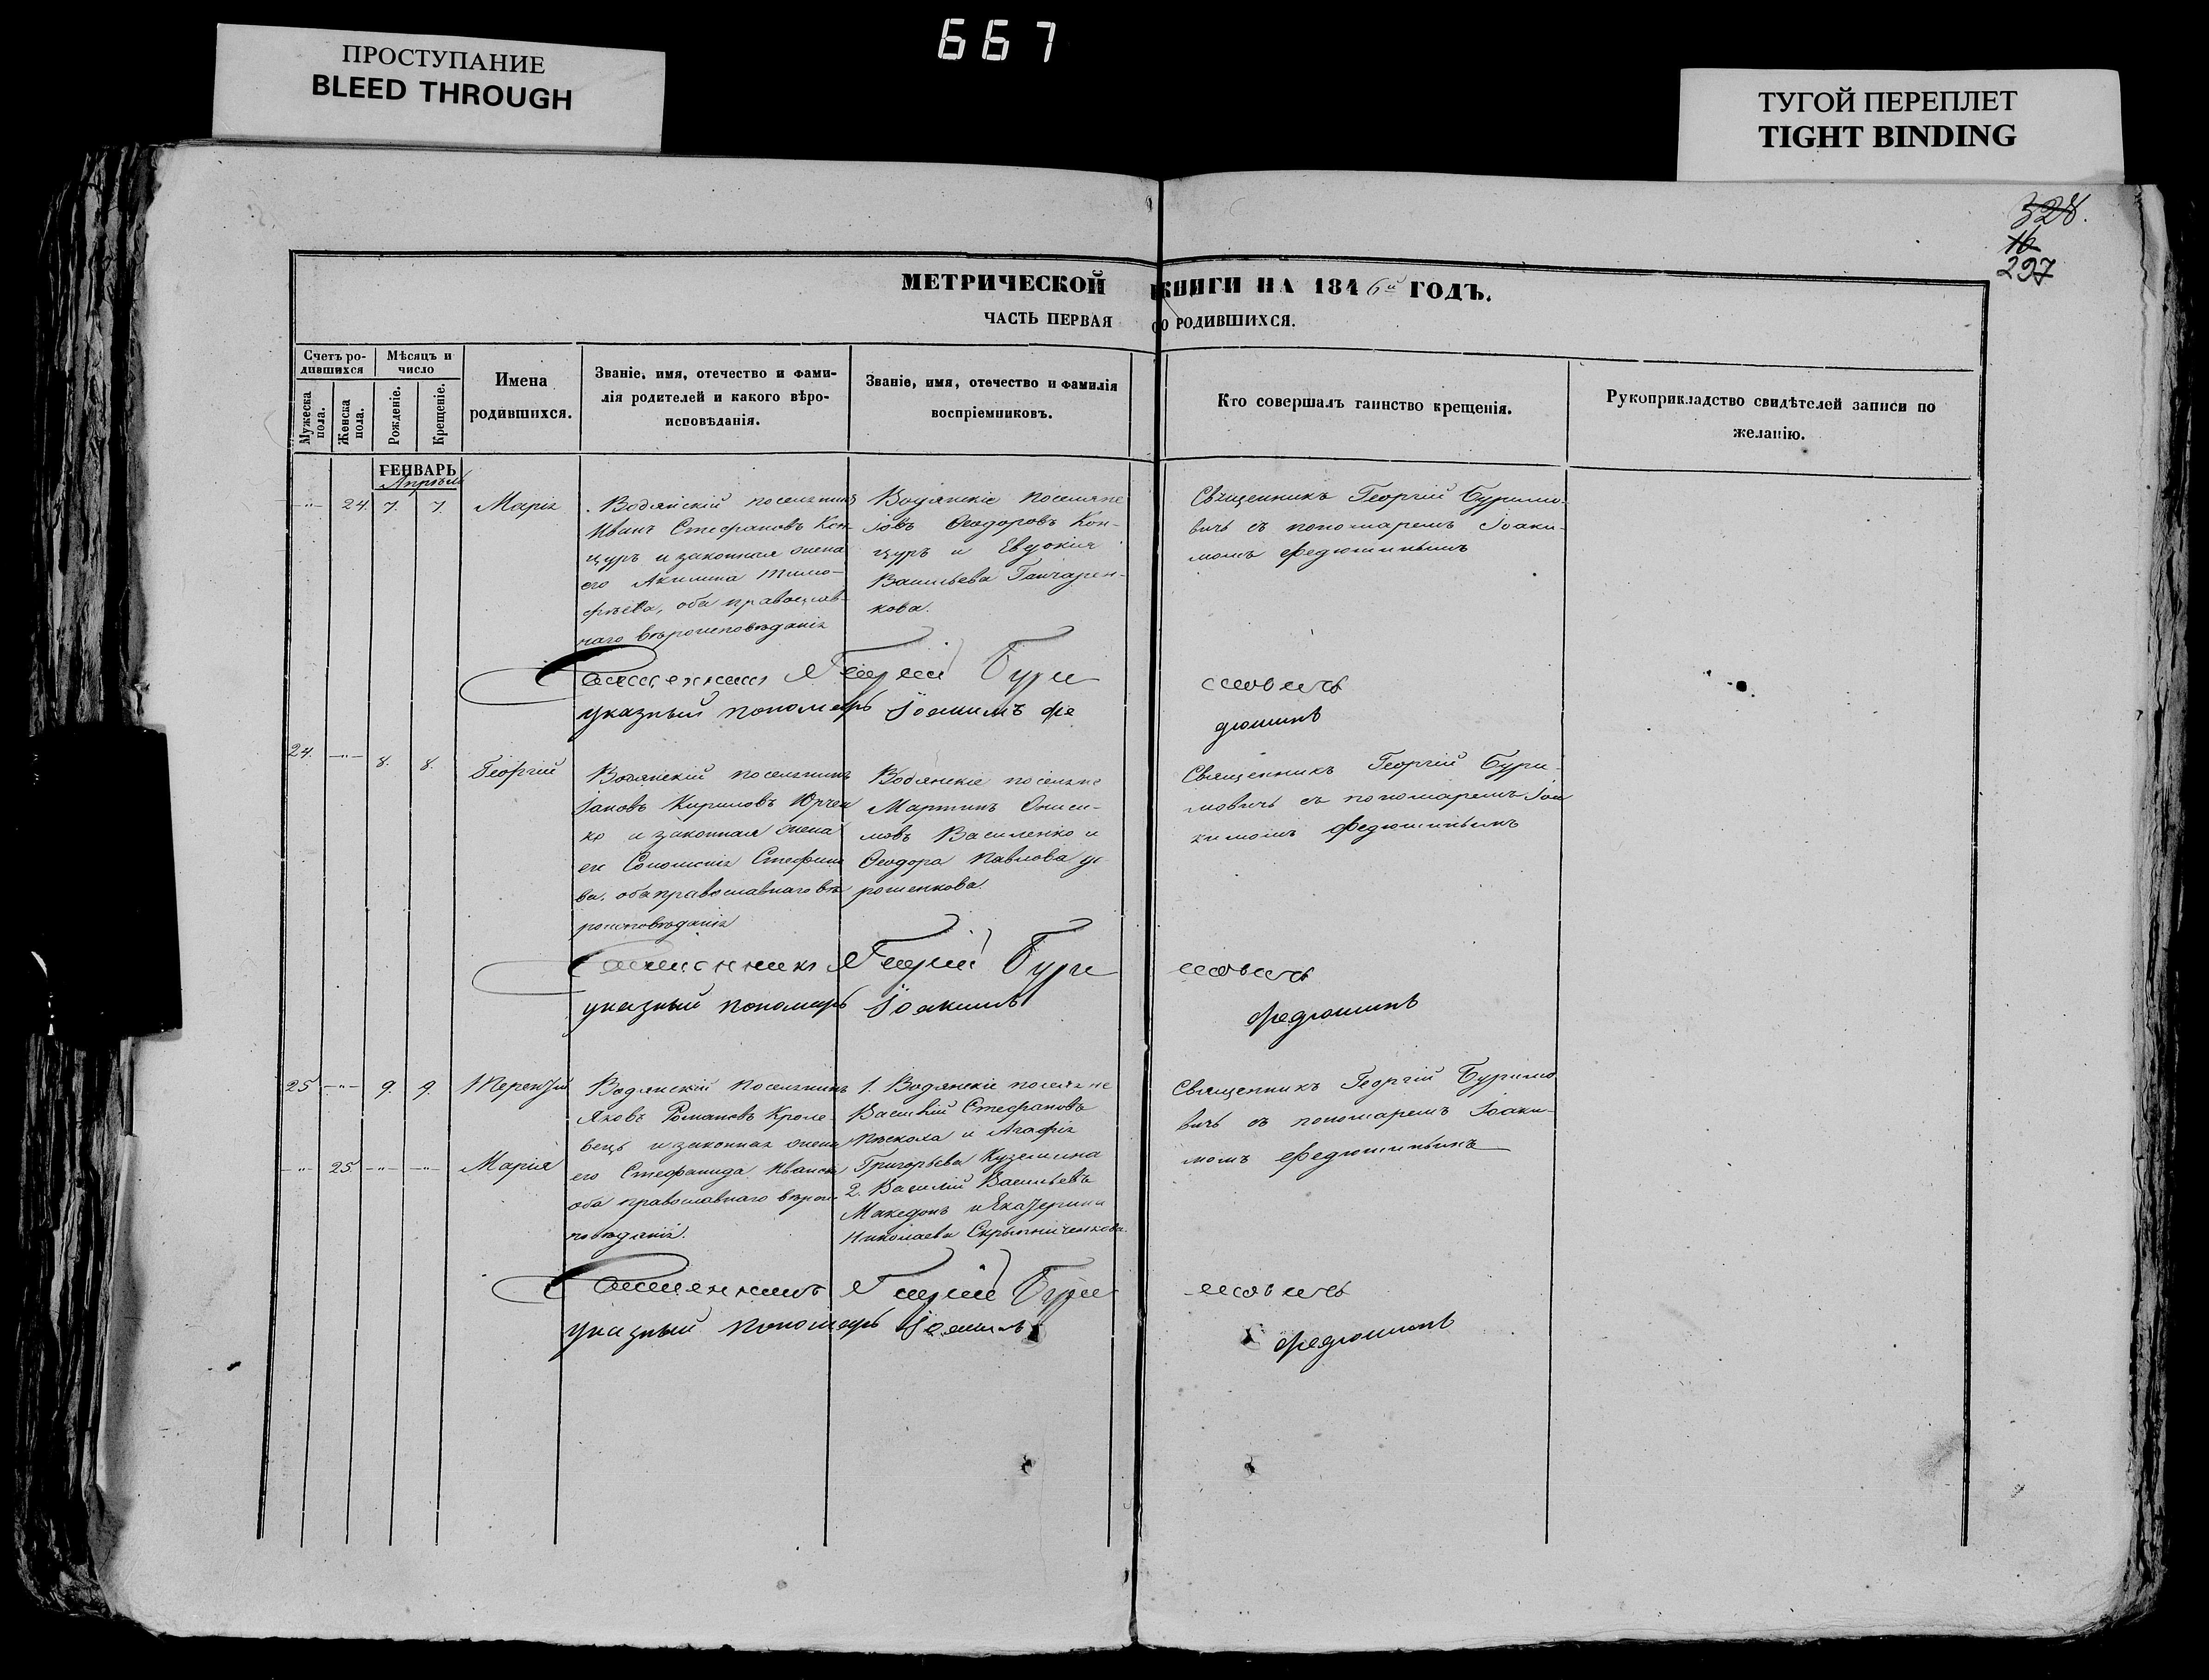 667
ПРОСТУПАНИЕ
BLEED THROUGH
ТУГОЙ ПЕРЕПЛЕТ
TIGHT BINDING
328.
16
297
МЕТРИЧЕСКОЙ КНИГИ НА 1846й ГОДЪ.
ЧАСТЬ ПЕРВАЯ О РОДИВШИХСЯ.
Счетъ ро-
дившихся
Мѣсяцъ и
число
Мужеска
пола.
Женска
пола.
Рожденіе.
Крещеніе.
Имена
родившихся.
Званіе, имя, отечество и фами-
лія родителей и какого вѣро-
исповѣданія.
Званіе, имя, отечество и фамилія
воспріемниковъ.
Кто совершалъ таинство крещенія.
Рукоприкладство свидѣтелей записи по
желанію.
ГЕНВАРЬ
Апрѣль
-"- 24. 7. 7. Марія
Водянскій поселянинъ
Иванъ Стефановъ Кон
цуръ и законная жена
его Акилина Тимо-
фѣева, оба православ-
наго вѣроисповѣданія
Водянскіе поселяне
Іовъ Ѳеодоровъ Кон-
цуръ и Евдокія
Васильева Ганчарен-
кова.
Священникъ Георгій Буримо-
вичъ съ пономаремъ Іоаки-
момъ Федюшинымъ
Священникъ Георгій Бури
мовичъ
указный пономарь Іоакимъ Фе
дюшинъ
24. -"- 8. 8. Георгій
Водянскій поселянинъ
Іаковъ Кириловъ Юрчен
ко и законная жена
его Соломонія Стефано
ва, оба православнаго вѣ
роисповѣданія
Водянскіе поселяне
Мартинъ Ониси-
мовъ Василенко и
Ѳеодора Павлова до
рошенкова.
Священникъ Георгій Бури-
мовичъ съ пономаремъ Іоа
кимомъ Федюшинымъ
Священникъ Георгій Бури
мовичъ
указный пономарь Іоакимъ
Федюшинъ
25 -"- 9. 9. Терентій
Водянскій поселянинъ
Яковъ Романовъ Кроле-
вецъ и законная жена
его Стефанида Иванова
оба православнаго вѣроис
повѣданія.
1. Водянскіе поселяне
Василій Стефановъ
и Агафія
Григорьева Куземина
2. Василій Васильевъ
Македонъ и Екатерина
Николаева Скрыпниченкова.
Священникъ Георгій Буримо
вичъ съ пономаремъ Іоаки-
момъ Федюшинымъ
-"- 25 -"- -"- Марія
Священникъ Георгій Бури
мовичъ
указный пономарь Іоакимъ
Федюшинъ